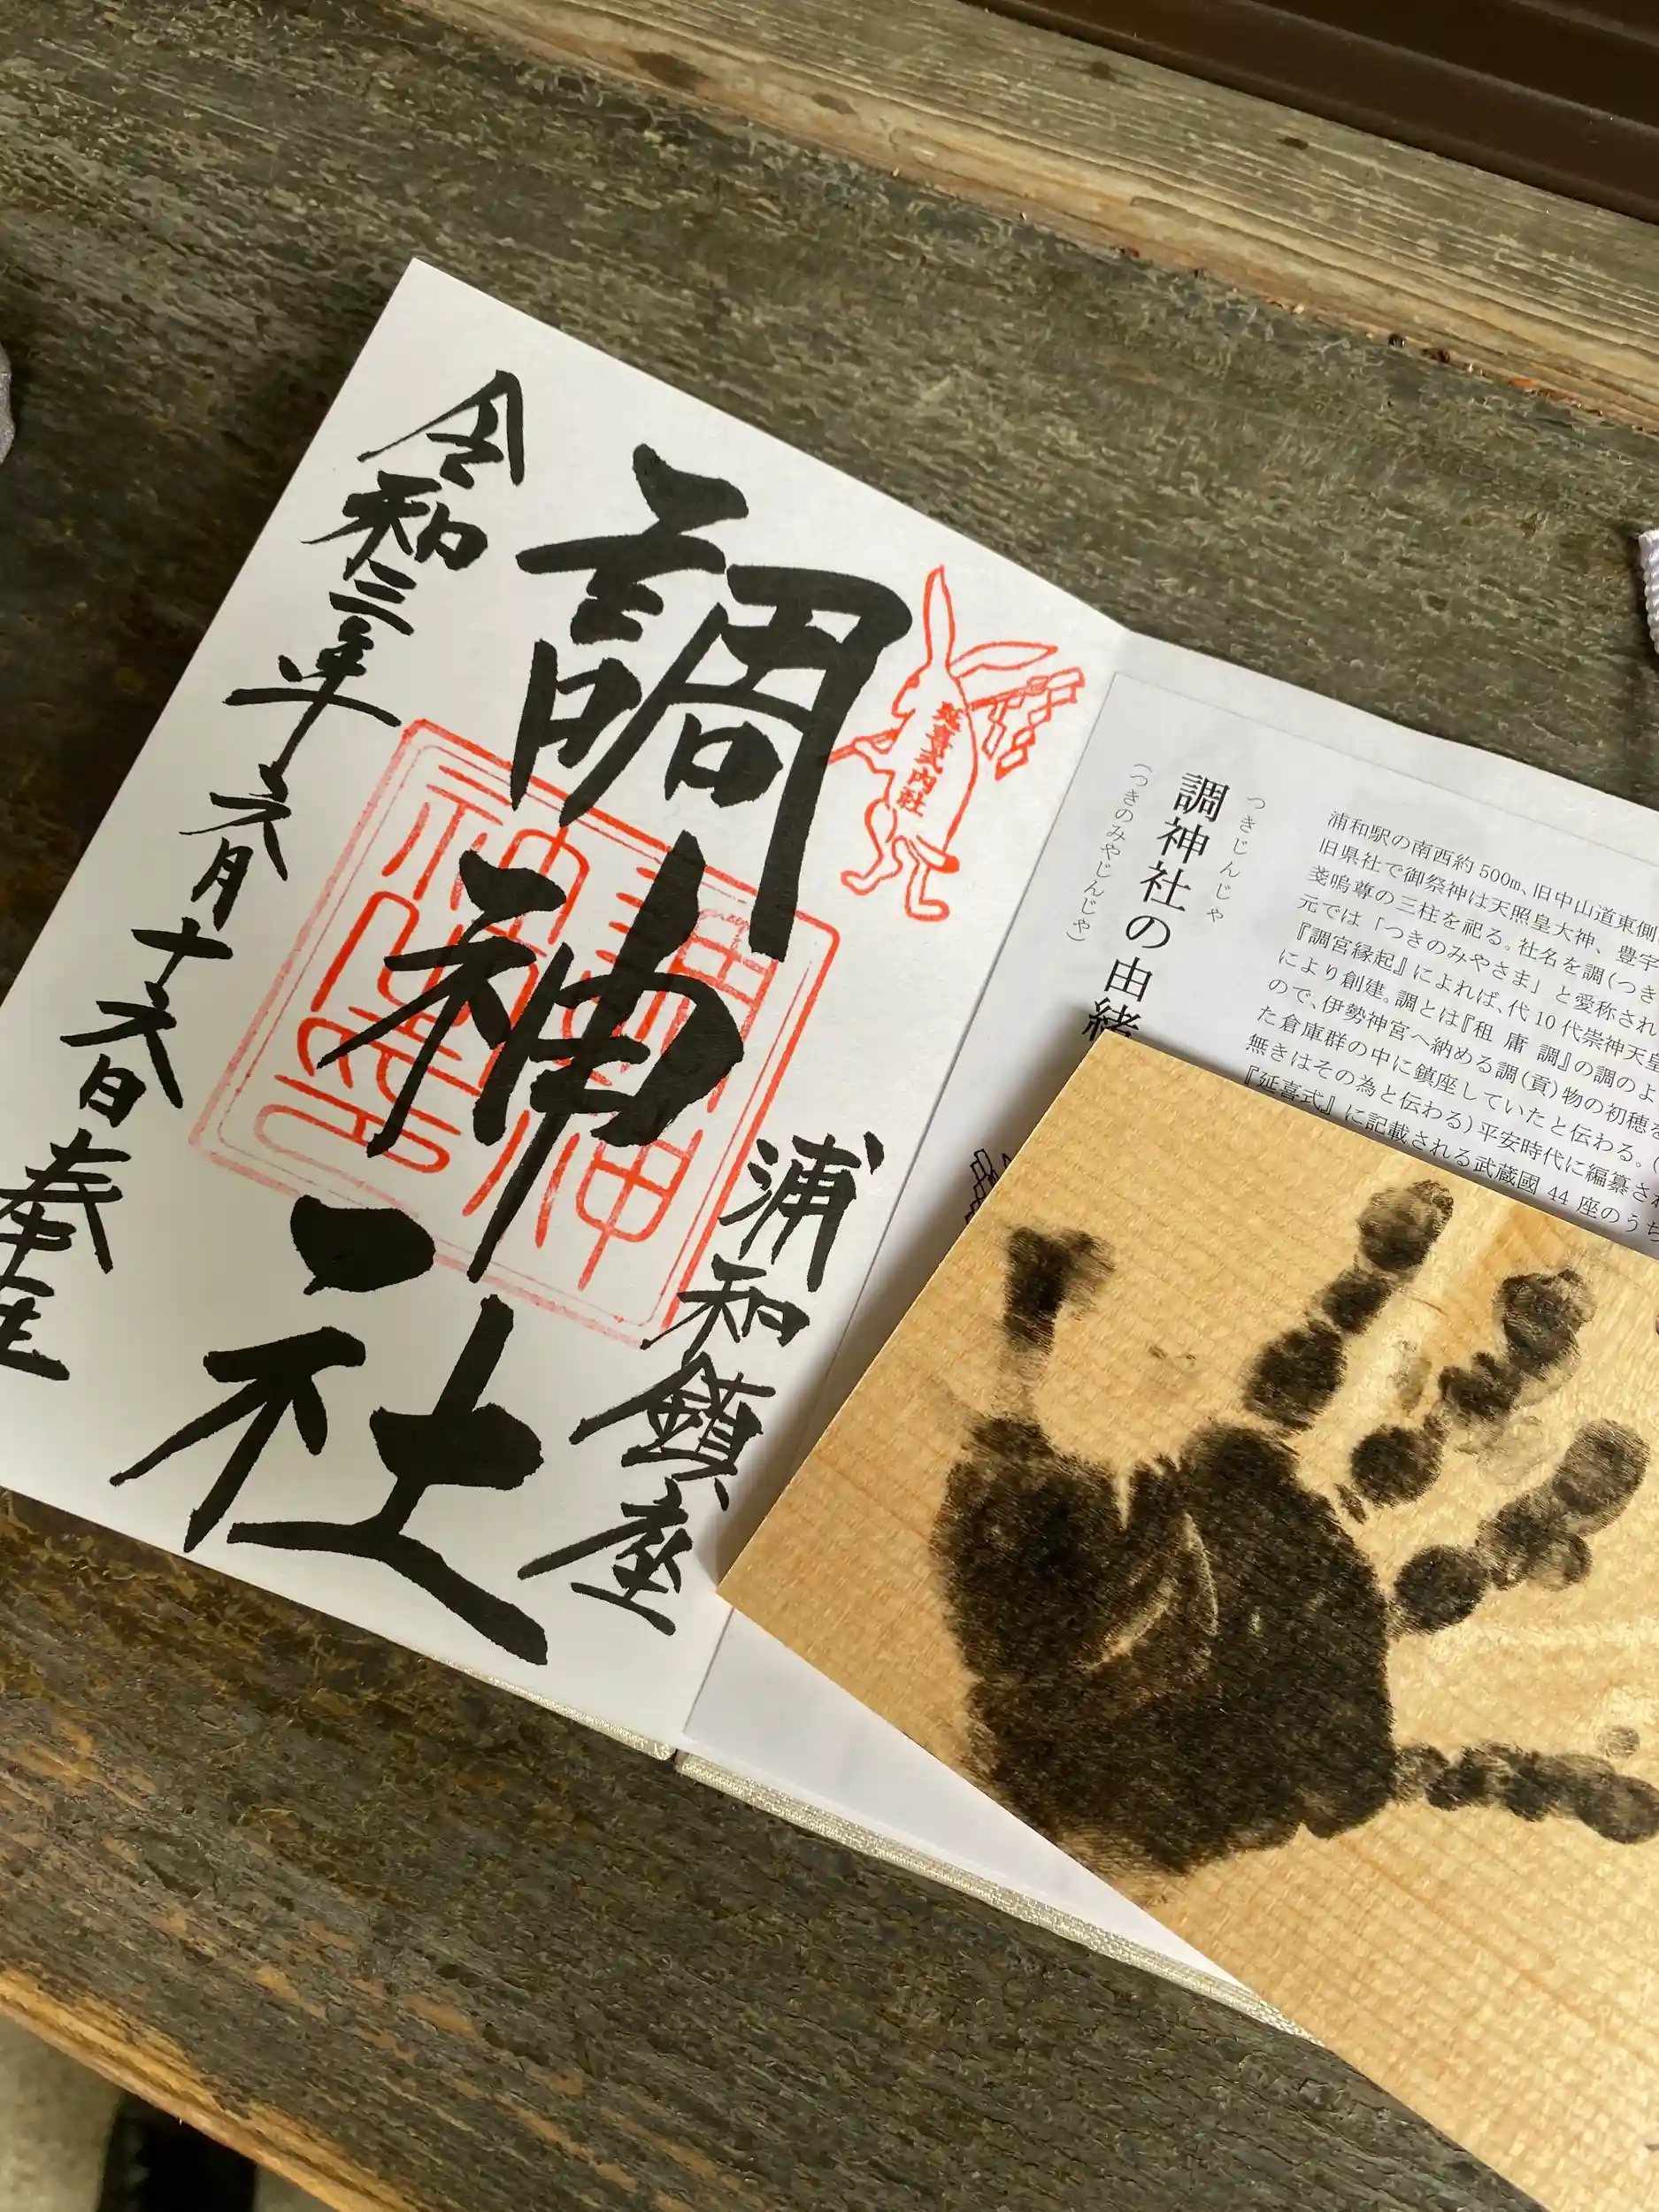 延喜式内社
浦和鎮座
調神社
令和三年六月十六日奉拝
つきじんじゃ
調神社の由緒
(つきのみやじんじゃ)
浦和駅の南西約 500m、旧中山道東側
旧県社で御祭神は天照皇大神、豊宇
戔嗚尊の三柱を祀る。社名を調(つき
元では「つきのみやさま」と愛称され
『調宮縁起』によれば、代 10 代崇神天皇
により創建。調とは『租 庸 調』の調のよ
ので、伊勢神宮へ納める調(貢)物の初穂を
た倉庫群の中に鎮座していたと伝わる。(
無きはその為と伝わる)平安時代に編纂され
『延喜式』に記載される武蔵國 44 座のうち